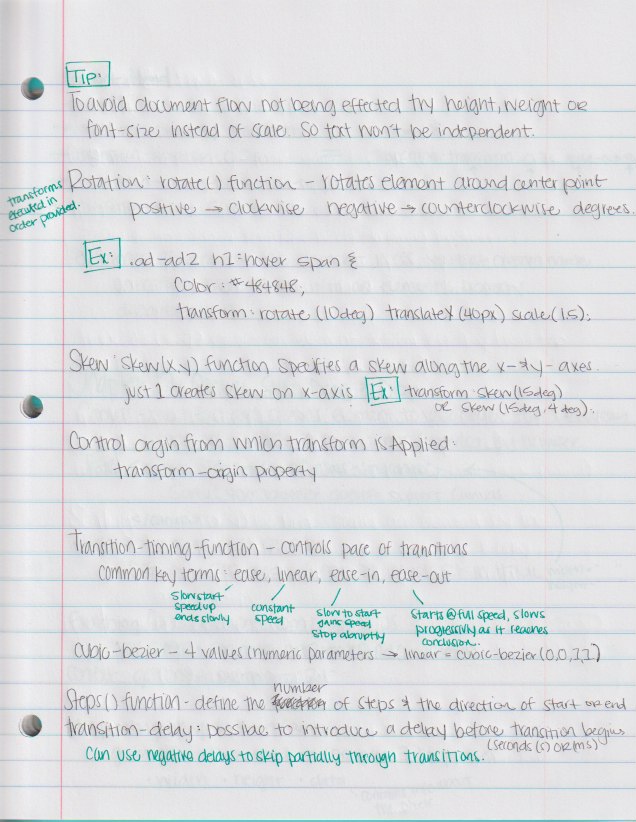 Tip:
To avoid document flow not being effected try height, weight or
font-size instead of scale. So text won't be independent.
Rotation: rotate() function - rotates element around center point
transforms
executed in
order provided.
positive → clockwise negative → counterclockwise degrees.
Ex: .ad-ad2 h1:hover span {
color: #484848;
transform: rotate (10deg) translateX (40px) scale(1.5);
Skew: skew(x,y) function specifies a skew along the x- & y- axes.
just 1 creates skew on x-axis Ex: transform: skew(15deg)
OR skew (15deg, 4deg);
Control orgin from which transform is Applied:
transform-origin property
Transition-timing-function - controls pace of transitions
common key terms: ease, linear, ease-in, ease-out
slow start
speed up
ends slowly
constant
speed
slow to start
gains speed
stop abruptly
starts @ full speed, slows
progressivly as it reaches
conclusion.
cubic-bezier - 4 values (numeric parameters → linear = cubic-bezier (0,0,1,1)
number
Steps() function - define the of steps & the direction of start or end
transition-delay: possible to introduce a delay before transition begins
(seconds (s) OR (ms)
Can use negative delays to skip partially through transitions.